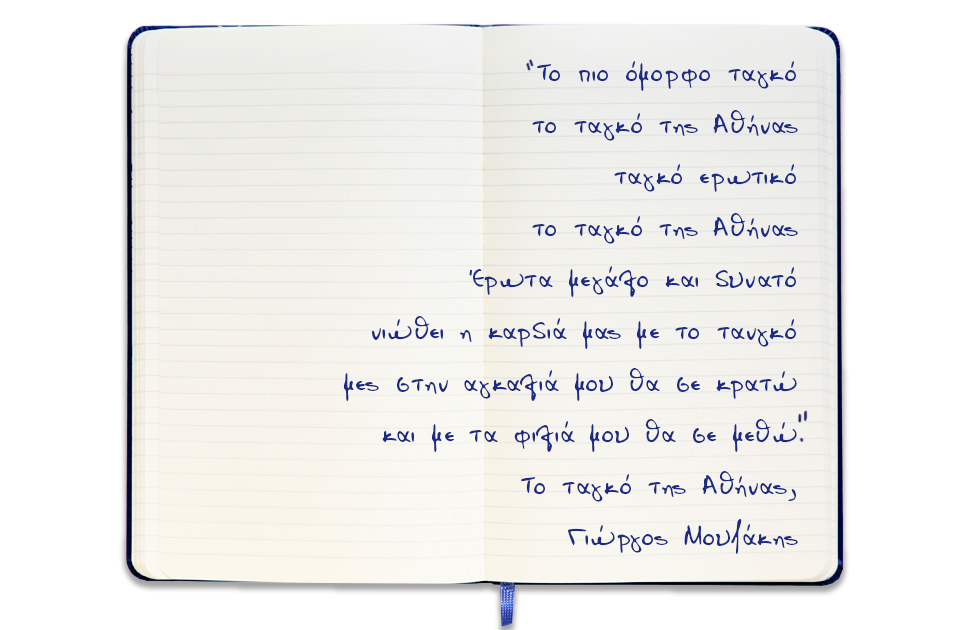 "Το πιο όμορφο ταγκό
το ταγκό της Αθήνας
ταγκό ερωτικό
το ταγκό της Αθήνας
Έρωτα μεγάλο και δυνατό
νιώθει η καρδιά μας με το τανγκό
μες στην αγκαλιά μου θα σε κρατώ
και με τα φιλιά μου θα σε μεθώ."
Το ταγκό της Αθήνας,
Γιώργος Μουζάκης